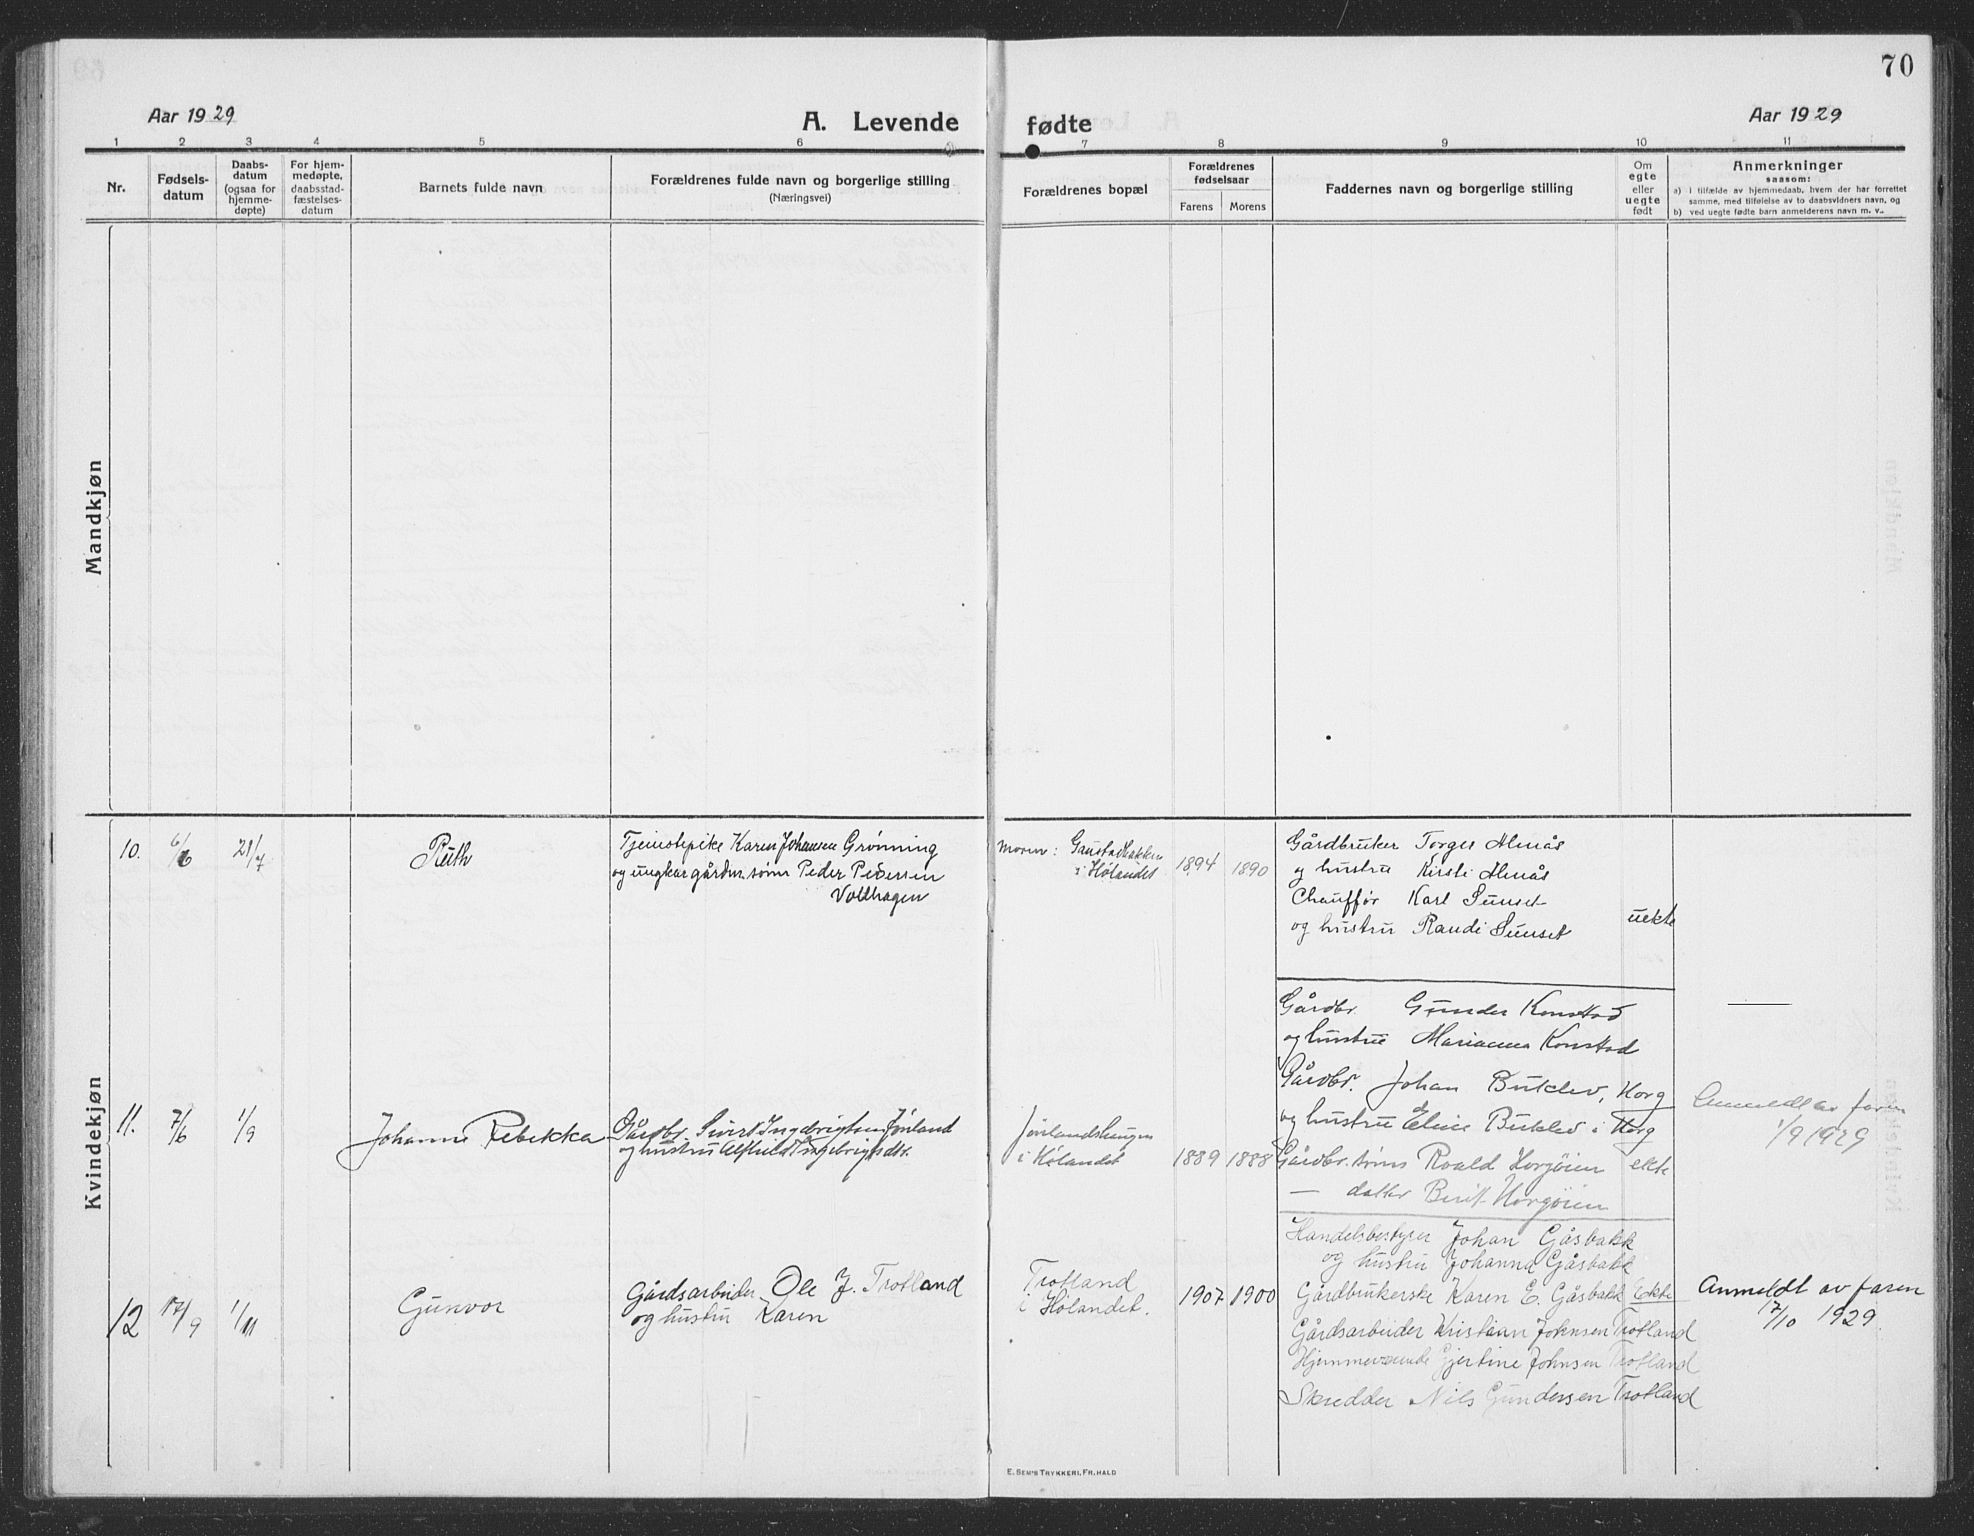 70
Aar 1929
A. Levende
fødte
Aar 1929
1 2 3 4 5 6 7 8 9 10 11
Nr.
Fødsels-
datum
Daabs-
datum
(ogsaa for
hjemme-
døpte)
For hjem-
medøpte,
daabsstad-
fæstelses-
datum
Barnets fulde navn
Forældrenes fulde navn og borgerlige stilling
(Næringsvei)
Forældrenes bopæl
Forældrenes
fødselsaar
Farens Morens
Faddernes navn og borgerlige stilling
Om
egte
eller
uegte
født
Anmerkninger
saasom:
a) i tilfælde av hjemmedaab, hvem der har forrettet
samme, med tilføielse av to daabsvidners navn, og
b) ved uegte fødte barn anmelderens navn m. v..
Mandkjøn
Kvindekjøn
10. 6/6 21/7 Ruth
Tjenestepike Karen Johansen Grønning
og ungkar gårdm. sønn Peder Pedersen
Voldhagen
Moren: Gaustadbakken
i Hølandet
1894 1890
Gårdbruker Torger Almås
og hustru Kirsti Almås
Chauffør Karl Sunset
og hustru Randi Sunset
uekte
11. 7/6 1/9 Johanne Rebekka
Gårdbr. Sivert Ingebrigtsen Jønland
og hustru Alfhild Ingebrigtsdtr.
Jønlandshaugen
i Hølandet
1889 1888
Gårdbr. Gunder Konstad
og hustru Marianna Konstad
Gårdbr. Johan Buklev, Horg
og hustru Eline Buklev i Horg
Gårdbr. sønn Roald Horgøien
— datter Berit Horgøien
ekte
Anmeldt av faren
1/9 1929
12 17/9 1/11 Gunvor
Gårdsarbeider Ole J. Trotland
og hustru Karen
Trotland
i Hølandet.
1907 1900
Handelsbestyrer Johan Gåsbakk
og hustru Johanna Gåsbakk
Gårdbrukerske Karen E. Gåsbakk
Gårdsarbeider Kristian Johnsen Trotland
Hjemmeværende Gjertine Johnsen Trotland
Skredder Nils Gundersen Trotland
Ekte
Anmeldt av faren
17/10 1929
E. SEM'S TRYKKERI, FR.HALD